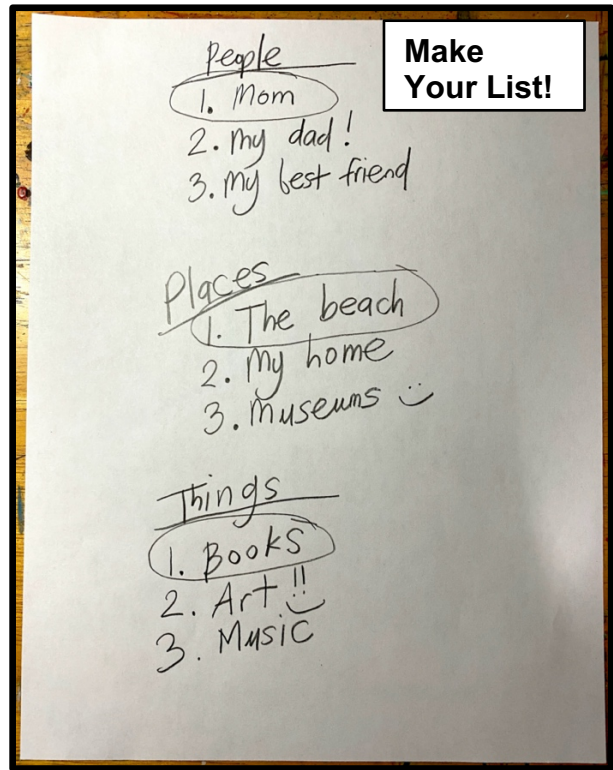 Make
Your List!
People
1. Mom
2. my dad!
3. my best friend
Places
1. The beach
2. My home
3. Museums
Things
1. Books
2. Art!!
3. Music